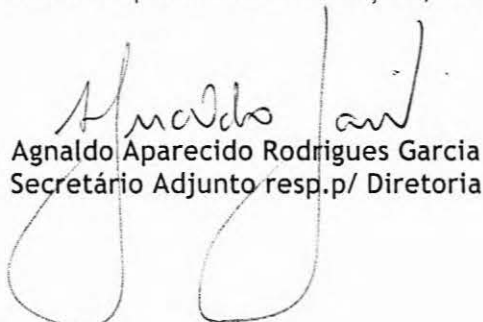 Agnaldo Aparecido Rodrigues Garcia
Secretário Adjunto resp.p/ Diretoria